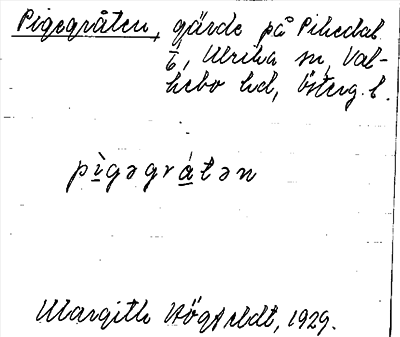 Pigegråten, gärde på Pikedal
1/6, Ulrika sn, Val-
kebo hd, Österg. l.
pìgəgrátən
Margith Högfeldt, 1929.